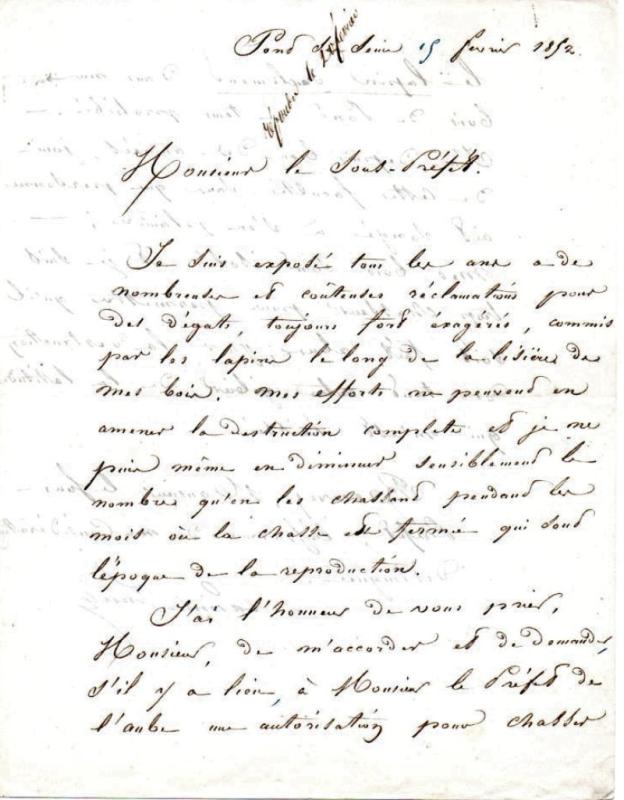 Pont sur Seine 15 février 1852.
répondu le
Monsieur le Sous-Préfet.
Je suis exposé tous les ans a de
nombreuses et coûteuses réclamations pour
des dégats, toujours fort éxagérés, commis
par les lapins le long de la lisière de
mes bois. mes efforts ne peuvent en
amener la destruction complete et je ne
puis même en diminuer sensiblement le
nombre qu'en les chassant pendant les
mois où la chasse est fermée qui sont
l'époque de la reproduction.
J'ai l'honneur de vous prier,
Monsieur, de m'accorder et de demander,
s'il y a lieu, à Monsieur le Préfet de
l'aube une autorisation pour chasser